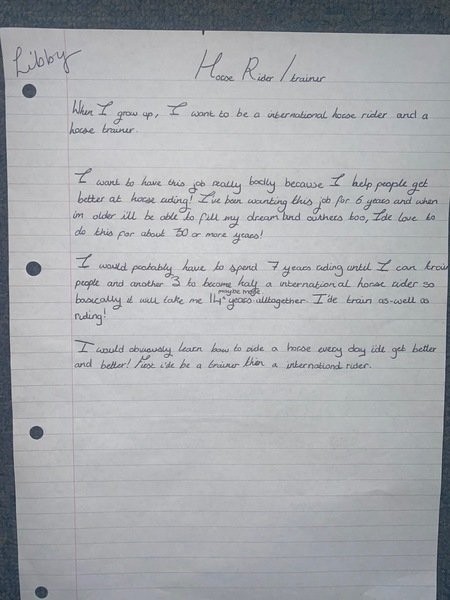 Libby
Horse Rider / trainer
When I grow up, I want to be a international horse rider and a
horse trainer.
I want to have this job really badly because I help people get
better at horse riding! I've been wanting this job for 6 years and when
im older ill be able to full my dream and outhers too, I'de love to
do this for about 30 or more years!
I would probably have to spend 7 years riding until I can train
people and another 3 to become half a international horse rider so
basically it will take me 14 maybe more years alltogether. I'de train as-well as
riding!
I would obviously learn how to ride a horse every day ide get better
and better! First i'de be a trainer then a international rider.